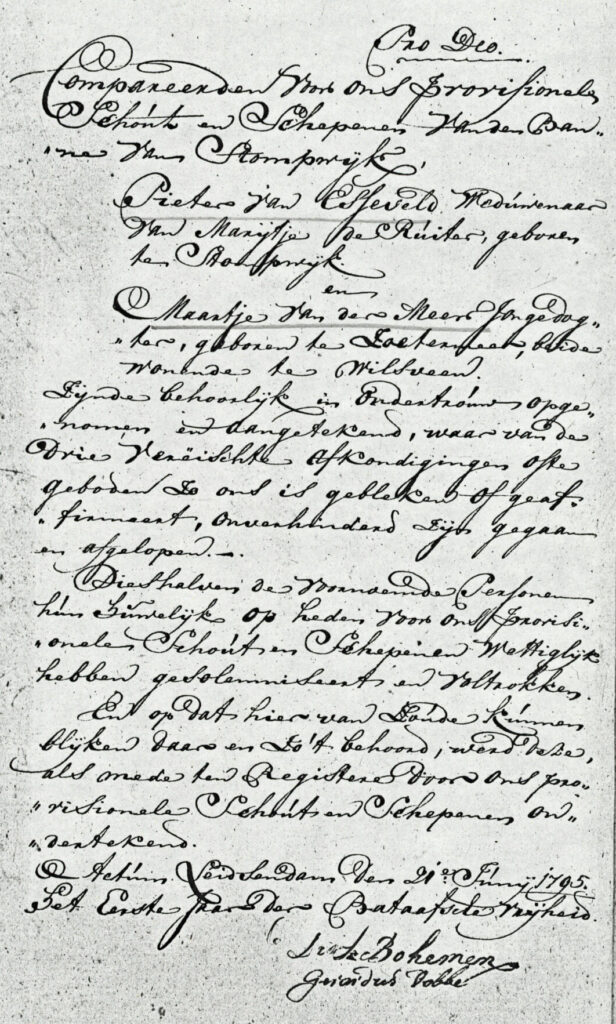 Pro Deo.
Compareerden voor ons Provisionele
Schout en Schepenen van den Ban-
"ne van Stompwijk,
Pieter van Esseveld Weduwenaar
van Marijtje de Ruiter, geboren
te Stompwijk.
en
Maartje van der Meer Jongedog-
"ter, geboren te Zoetermeer, beide
wonende te Wilsveen.
Zijnde behoorlijk in Ondertrouw opge-
"nomen en aangetekend, waar van de
Drie Vereischte afkondigingen ofte
geboden Zo ons is gebleken of geaf-
"firmeert, onverhinderd Zijn gegaan
en afgelopen.-.
Dieshalven de voornoemde Personen
hun Huwelijk op heden voor ons Provisi-
"onele Schout en Schepenen Wettiglijk
hebben gesolemniseert en Voltrokken.
En op dat hier van Zoude kunnen
blijken daar en Zo't behoord, werd deze,
als mede ten Registere door ons pro-
"visionele Schout en Schepenen on-
"dertekend.
Actum Leidsendam den 21e Junij 1795.
Het Eerste Jaar der Bataafsche Vrijheid.
Bohemen
Dobbe